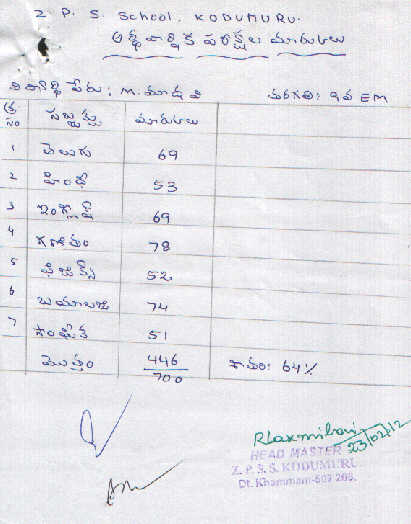 Z. P. S. School, KODUMURU.
అర్థ వార్షిక పరీక్షల మార్కులు
విద్యార్థి పేరు: M. మాధవి తరగతి: 9వ EM
క్ర సం సబ్జెక్టు మార్కులు
1 తెలుగు 69
2 హిందీ 53
3 ఇంగ్లీష్ 69
4 గణితం 78
5 ఫిజిక్స్ 52
6 బయాలజి 74
7 సాంఘీక 51
మొత్తం 446/700 శాతం: 64%
RLaxmibai
23/02/12
HEAD MASTER
Z. P. S. S. KODUMURU
Dt. Khammam-507